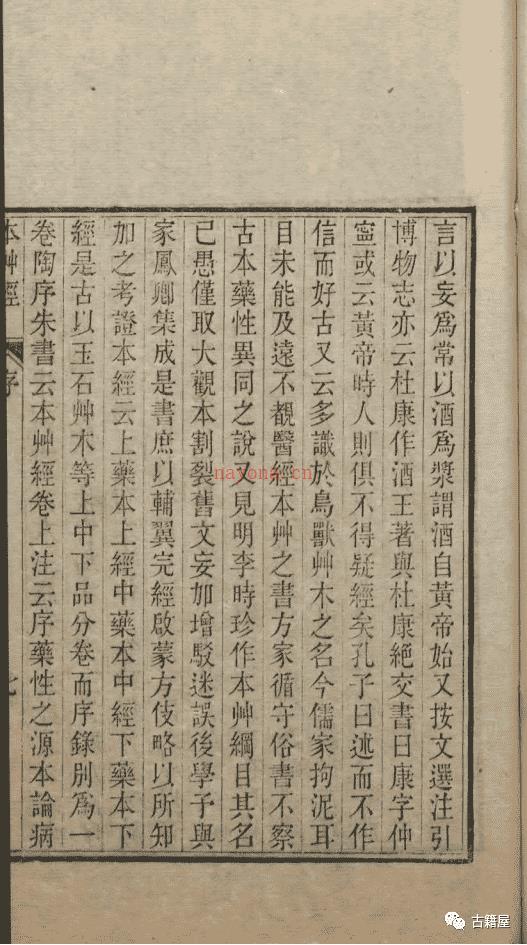 言以妄爲常以酒爲漿謂酒自黃帝始又按文選注引
博物志亦云杜康作酒王著與杜康絕交書曰康字仲
寍或云黃帝時人則俱不得疑經矣孔子曰述而不作
信而好古又云多識於鳥獸艸木之名今儒家拘泥耳
目未能及遠不覩醫經本艸之書方家循守俗書不察
古本藥性異同之說又見明李時珍作本艸綱目其名
已愚僅取大觀本割裂舊文妄加增駁迷誤後學予與
家鳳卿集成是書庶以輔翼完經啟蒙方伎略以所知
加之考證本經云上藥本上經中藥本中經下藥本下
經是古以玉石艸木等上中下品分卷而序錄別爲一
卷陶序朱書云本艸經卷上注云序藥性之源本論病
本艸經 序 七
nayona.cn
古籍屋